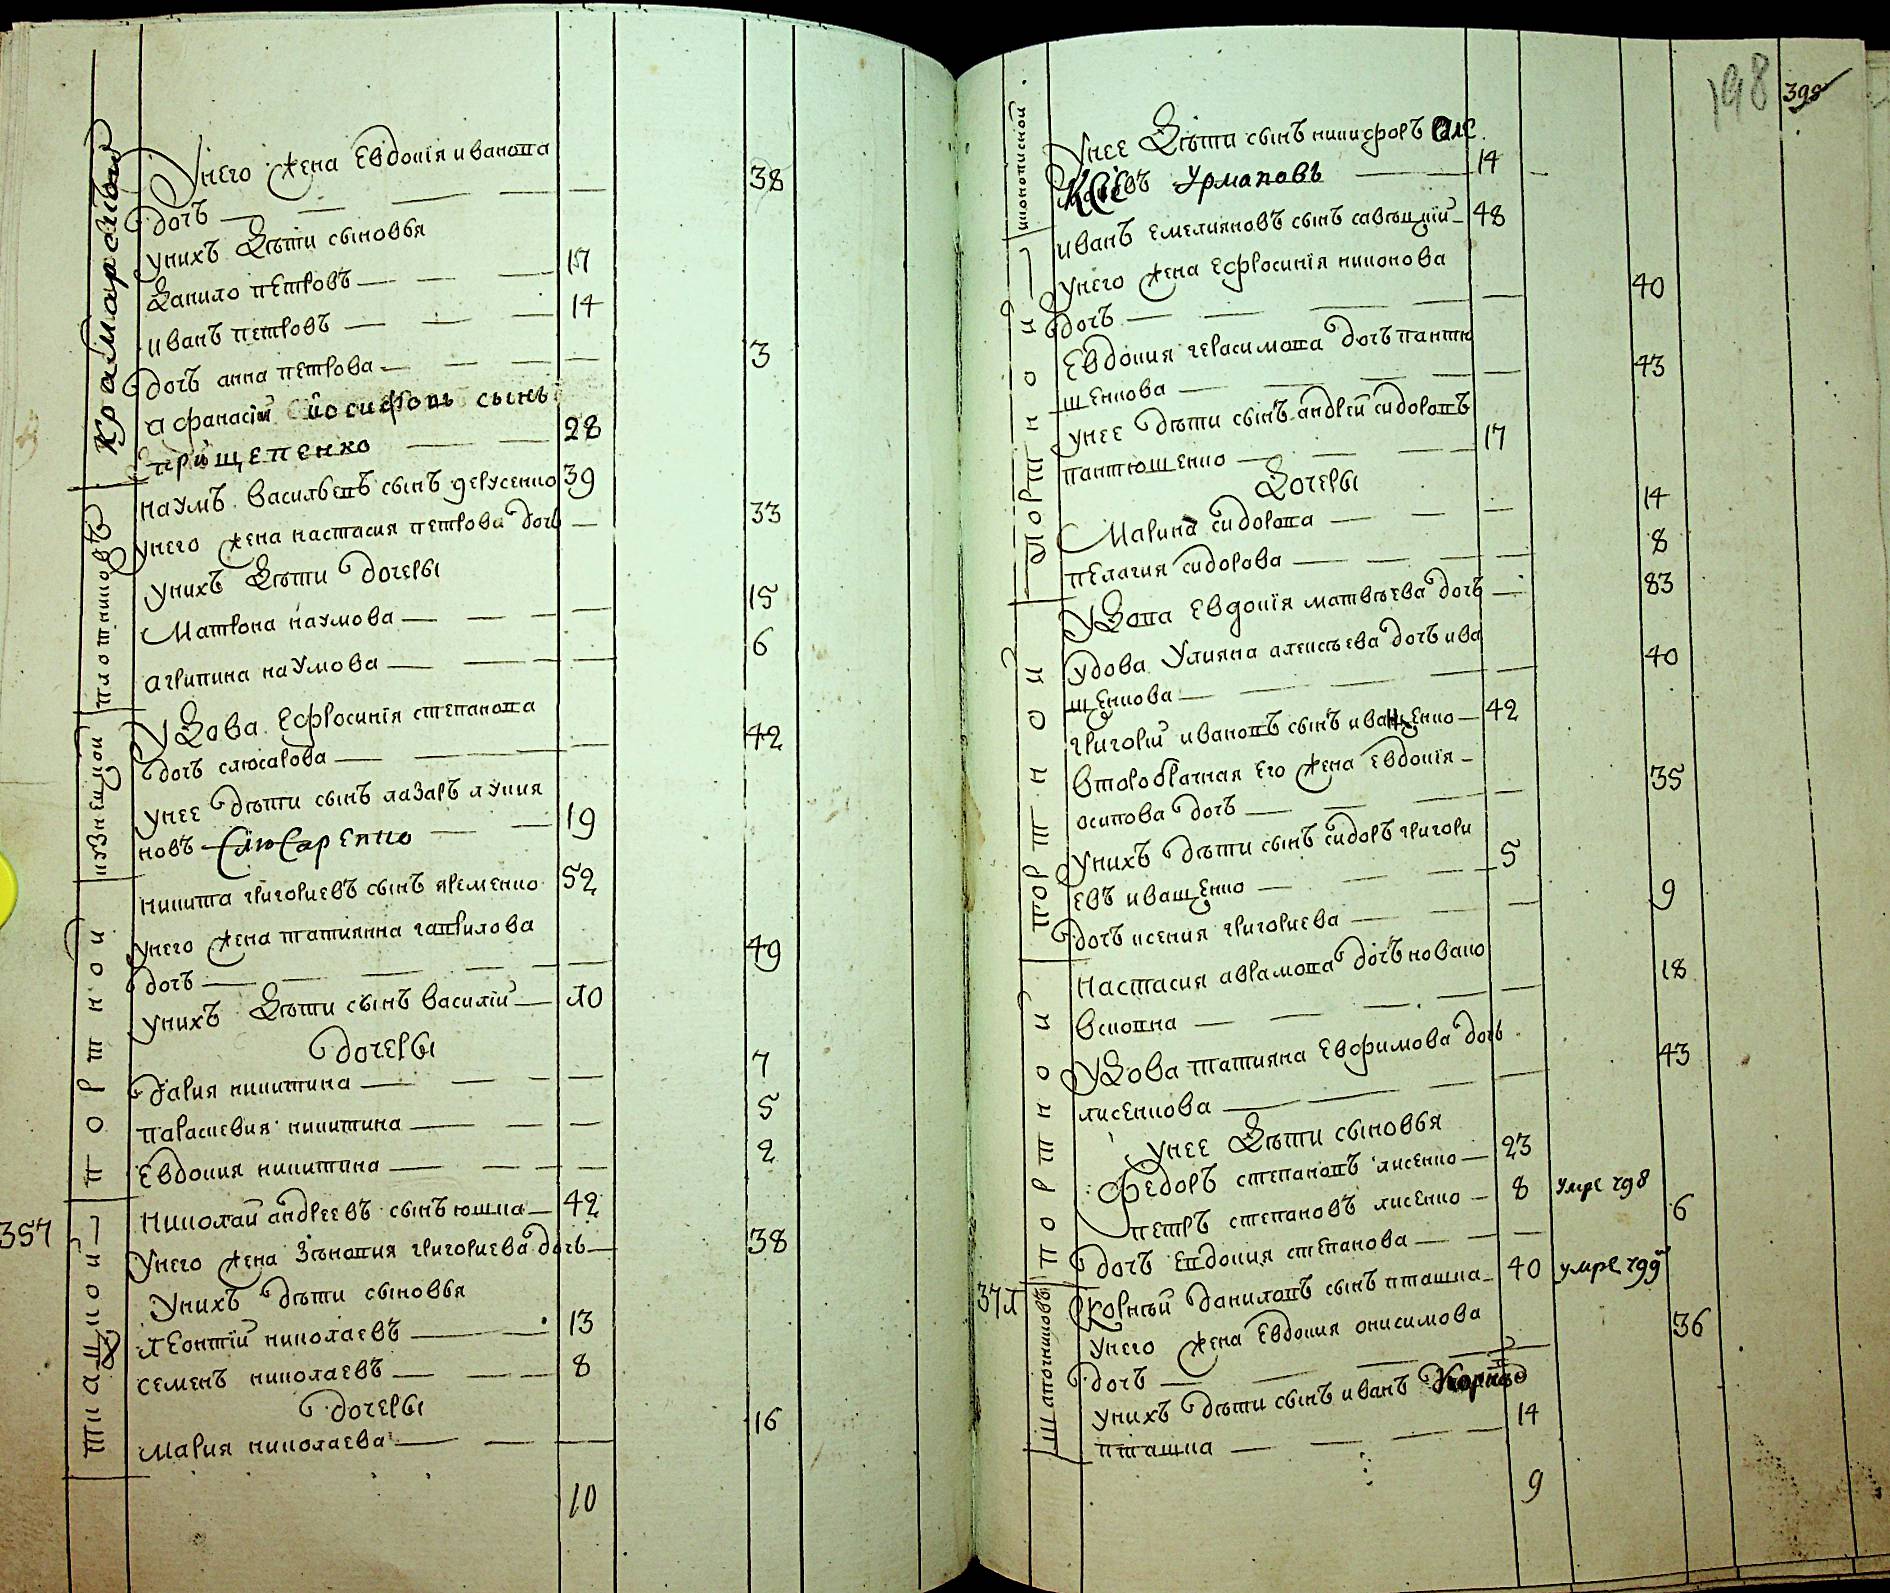 Крамарской
У него жена Евдокія иванова 38
дочь
У нихъ дѣти сыновья
Данило петровъ 17
иванъ петровъ 14
дочь анна петрова 3
афанасій йосифовъ сынъ
прищепенко 28
наумъ васильевъ сынъ дерусенко 39
плотниковъ
У него жена настасия петрова дочь 33
У нихъ дѣти дочеры
Матрона наумова 15
агрипина наумова 6
кузнецкой
Удова Ефросинія степанова
дочь слюсарова 42
У нее дѣти сынъ лазарь лукия
новъ Слюсаренко 19
портной
никита григориевъ сынъ яременко 52
У него жена татиянна гаврилова
дочь 49
У нихъ дѣти сынъ василій 10
дочеры
дария никитина 7
параскевия никитина 5
Евдокия никитина 2
ткацкой
357 Николай андреевъ сынъ юшка 42
У него жена Зѣновия григориева дочь 38
У нихъ дѣти сыновья
леонтій николаевъ 13
семенъ николаевъ 8
дочеры
мария николаева 16
10
198 398
иконописной
У нее дѣти сынъ никифоръ Але
Ксѣевъ Урмановъ 14
портной
иванъ емелияновъ сынъ савицкій 48
У него жена ефросинія никонова
дочь 40
Евдокия герасимова дочь пантю
шенкова 43
У нее дѣти сынъ андрей сидоровъ
пантюшенко 17
Дочеры
Марина сидорова 14
пелагия сидорова 8
портной
Удова Евдокія матвѣева дочь 83
удова Улияна алексѣева дочь ива
щенкова 40
григорій ивановъ сынъ иващенко 42
второбрачная его жена евдокія
осипова дочь 35
У нихъ дѣти сынъ сидоръ григори
евъ иващенко 5
дочь ксения григориева 9
портной
Настасия аврамова дочь новако
вскова 18
Удова татияна Евфимова дочь
лисенкова 43
У нее дѣти сыновья
Федоръ степановъ лисенко 23
петръ степановъ лисенко 8 умре 798
дочь Евдокия степанова 6
шапочниковъ
371 Корнѣй даниловъ сынъ пташка 40 умре 799
У него жена Евдокия онисимова
дочь 36
У нихъ дѣти сынъ иванъ Корнѣе
пташка 14
9